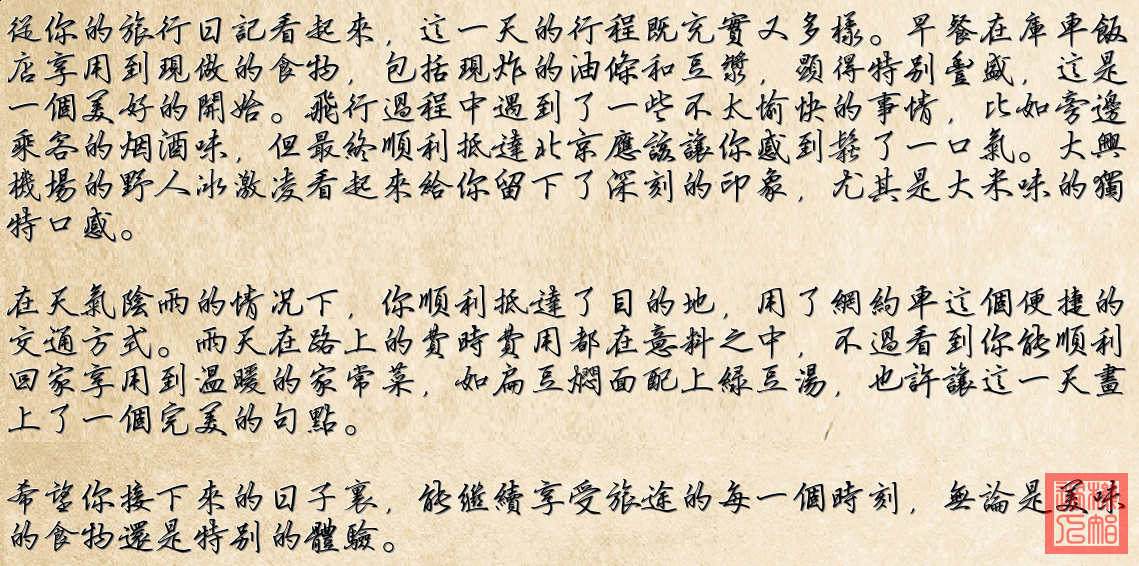 從你的旅行日記看起來，這一天的行程既充實又多樣。早餐在庫車飯
店享用到現做的食物，包括現炸的油條和豆漿，顯得特別豐盛，這是
一個美好的開始。飛行過程中遇到了一些不太愉快的事情，比如旁邊
乘客的烟酒味，但最終順利抵達北京應該讓你感到鬆了一口氣。大興
機場的野人冰激凌看起來給你留下了深刻的印象，尤其是大米味的獨
特口感。
在天氣陰雨的情况下，你順利抵達了目的地，用了網約車這個便捷的
交通方式。雨天在路上的費時費用都在意料之中，不過看到你能順利
回家享用到溫暖的家常菜，如扁豆燜面配上綠豆湯，也許讓這一天畫
上了一個完美的句點。
希望你接下來的日子裏，能繼續享受旅途的每一個時刻，無論是美味
的食物還是特別的體驗。